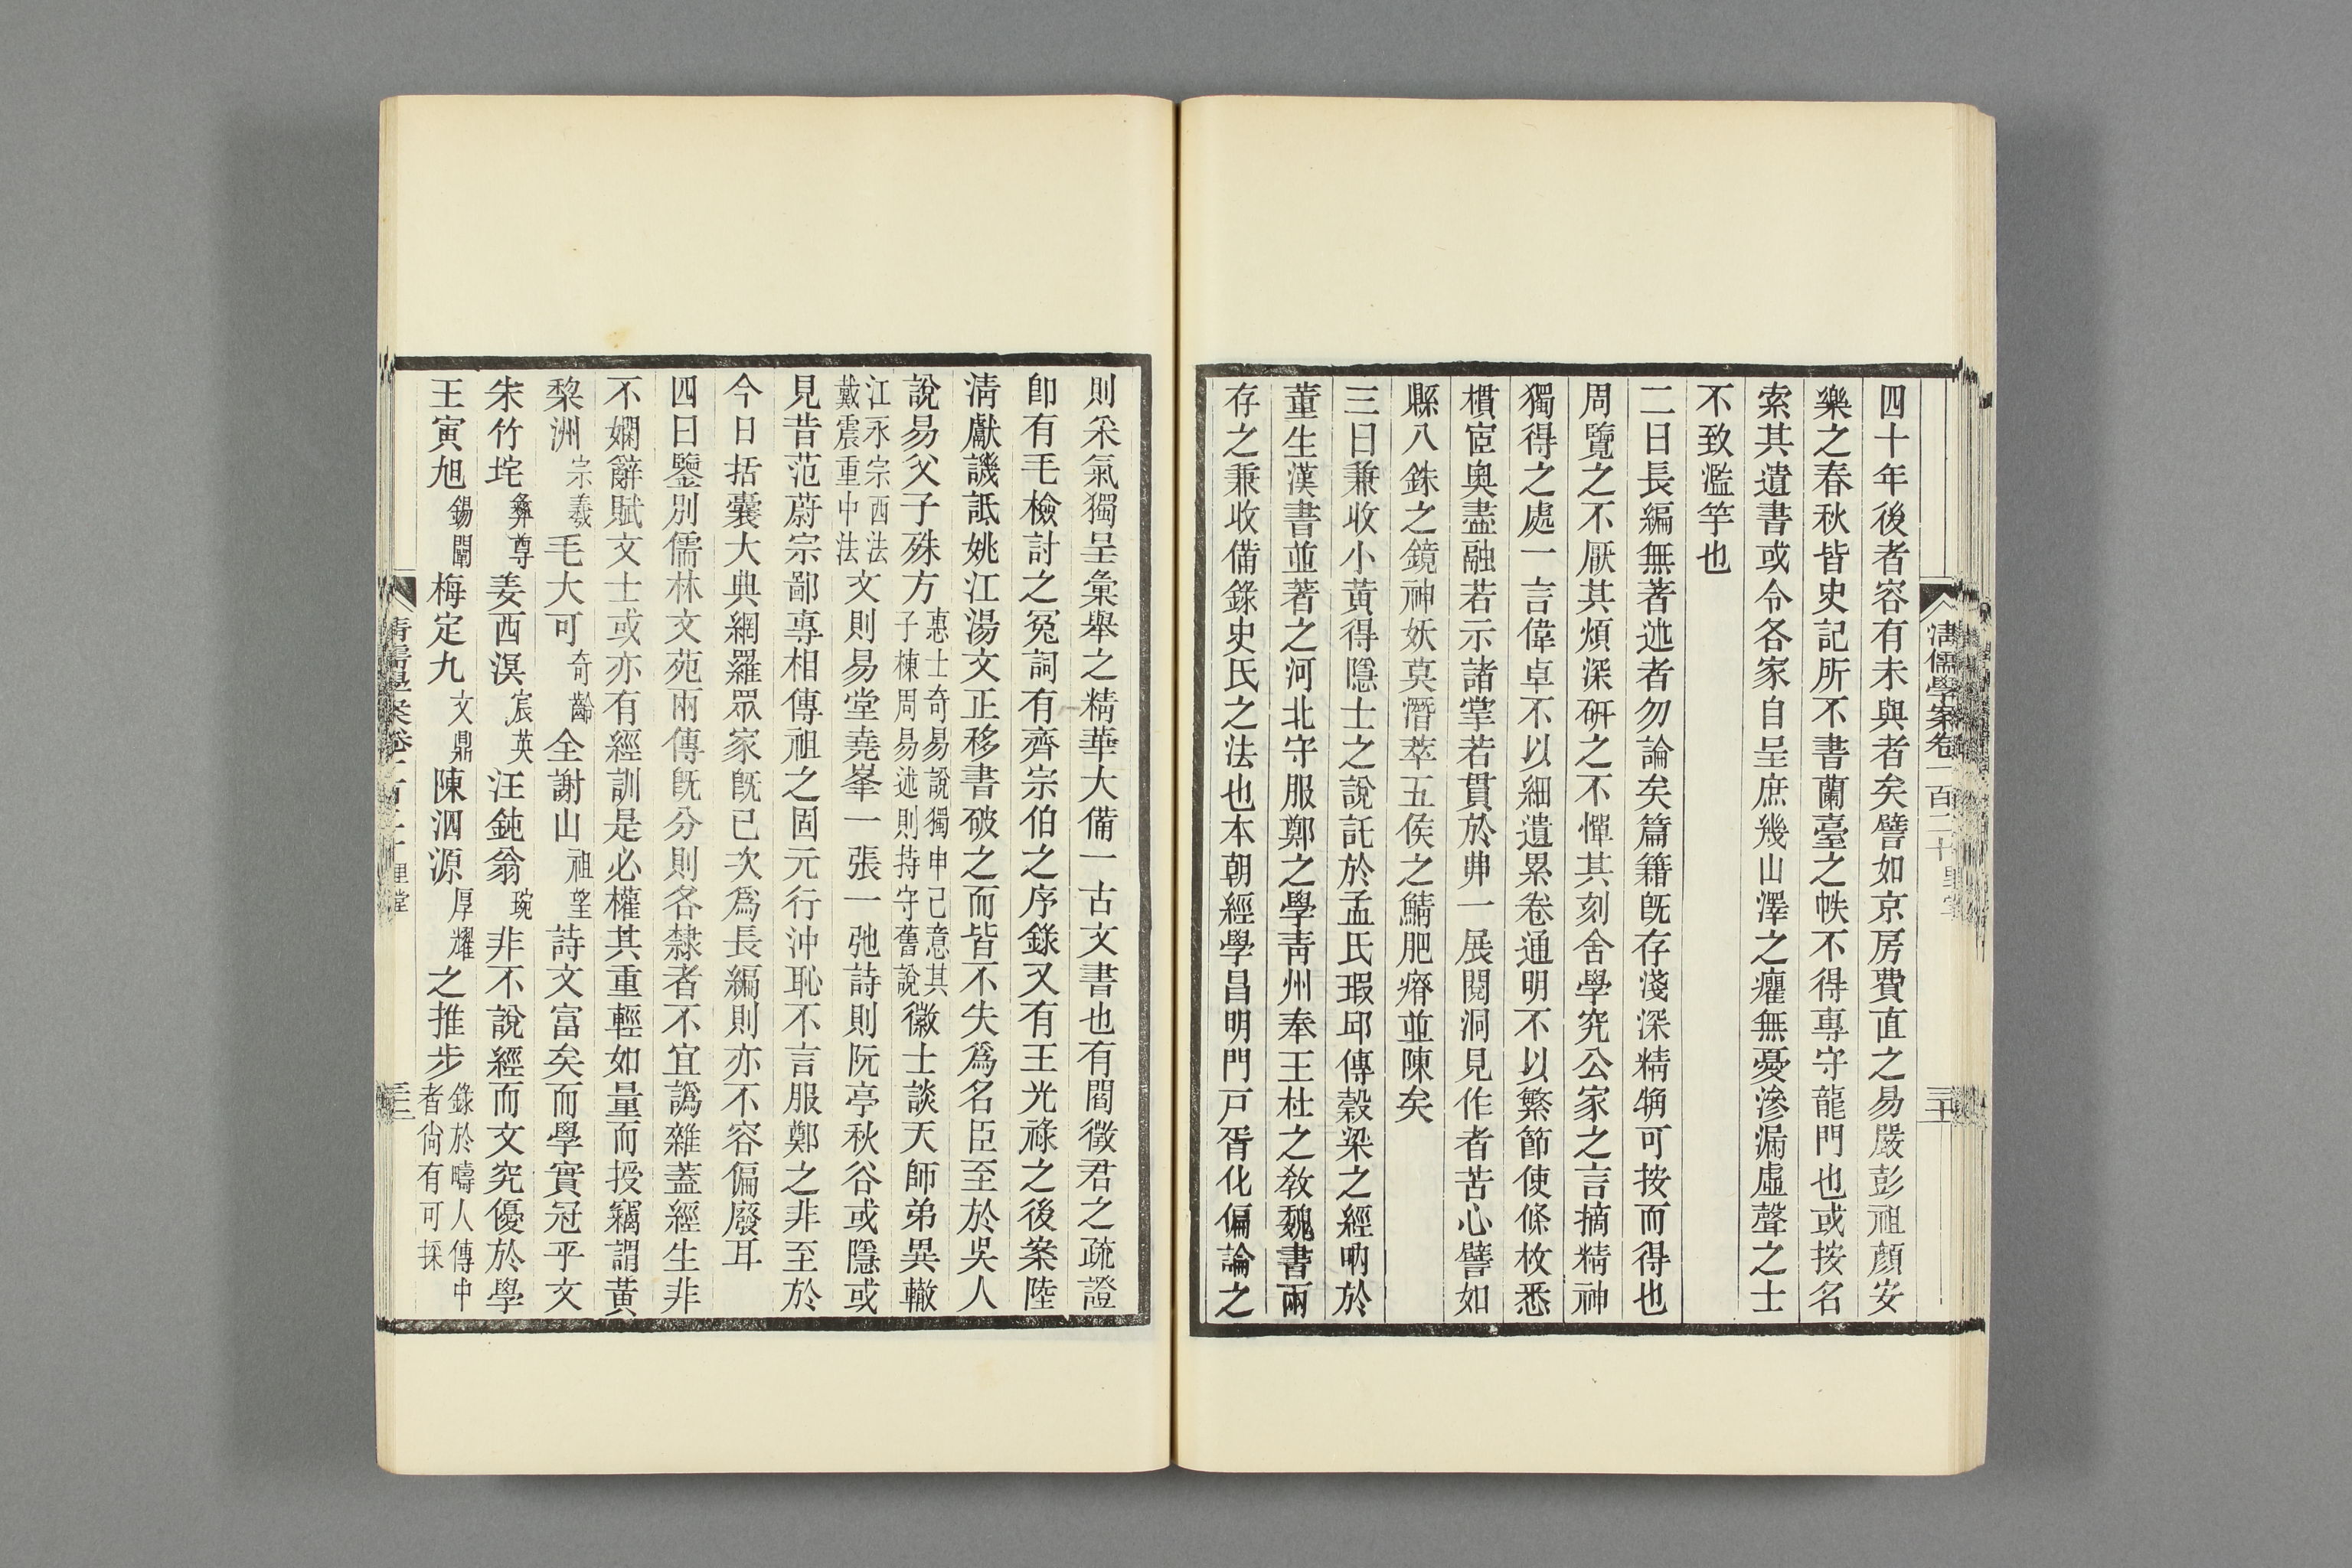 四十年後者容有未與者矣譬如京房費直之易嚴彭祖顏安
樂之春秋皆史記所不書蘭臺之帙不得專守龍門也或按名
索其遺書或令各家自呈庶幾山澤之癯無憂滲漏虛聲之士
不致濫竽也
二曰長編無著述者勿論矣篇籍旣存淺深精觕可按而得也
周覽之不厭其煩深硏之不憚其刻舍學究公家之言摘精神
獨得之處一言偉卓不以細遺累卷通明不以繁節使條枚悉
檟宧奧盡融若示諸掌若貫於丱一展閱洞見作者苦心譬如
縣八銖之鏡神妖莫憯萃五侯之鯖肥瘠並陳矣
三曰兼收小黃得隱士之說託於孟氏瑕邱傳穀梁之經吶於
董生漢書並著之河北守服鄭之學靑州奉王杜之敎魏書兩
存之兼收備錄史氏之法也本朝經學昌明門戸胥化偏論之
清儒學案卷一百二十 里堂
三十一
則朵氣獨呈彙舉之精華大備一古文書也有閻徵君之疏證
卽有毛檢討之冤詞有齊宗伯之序錄又有王光祿之後案陸
淸獻譏詆姚江湯文正移書破之而皆不失爲名臣至於吳人
說易父子殊方惠士奇易說獨申己意其子棟周易述則持守舊說徽士談天師弟異轍
江永宗西法戴震重中法文則易堂堯峯一張一弛詩則阮亭秋谷或隱或
見昔范蔚宗鄙專相傳祖之固元行沖恥不言服鄭之非至於
今日括囊大典網羅眾家旣已次爲長編則亦不容偏廢耳
四曰鑒別儒林文苑兩傳旣分則各隸者不宜譌雜蓋經生非
不嫻辭賦文士或亦有經訓是必權其重輕如量而授竊謂黃
棃洲宗羲毛大可奇齡全謝山祖望詩文富矣而學實冠乎文
朱竹垞彝尊姜西溟宸英汪鈍翁琬非不說經而文究優於學
王寅旭錫闡梅定九文鼎陳泗源厚耀之推步錄於疇人傳中者尙有可採